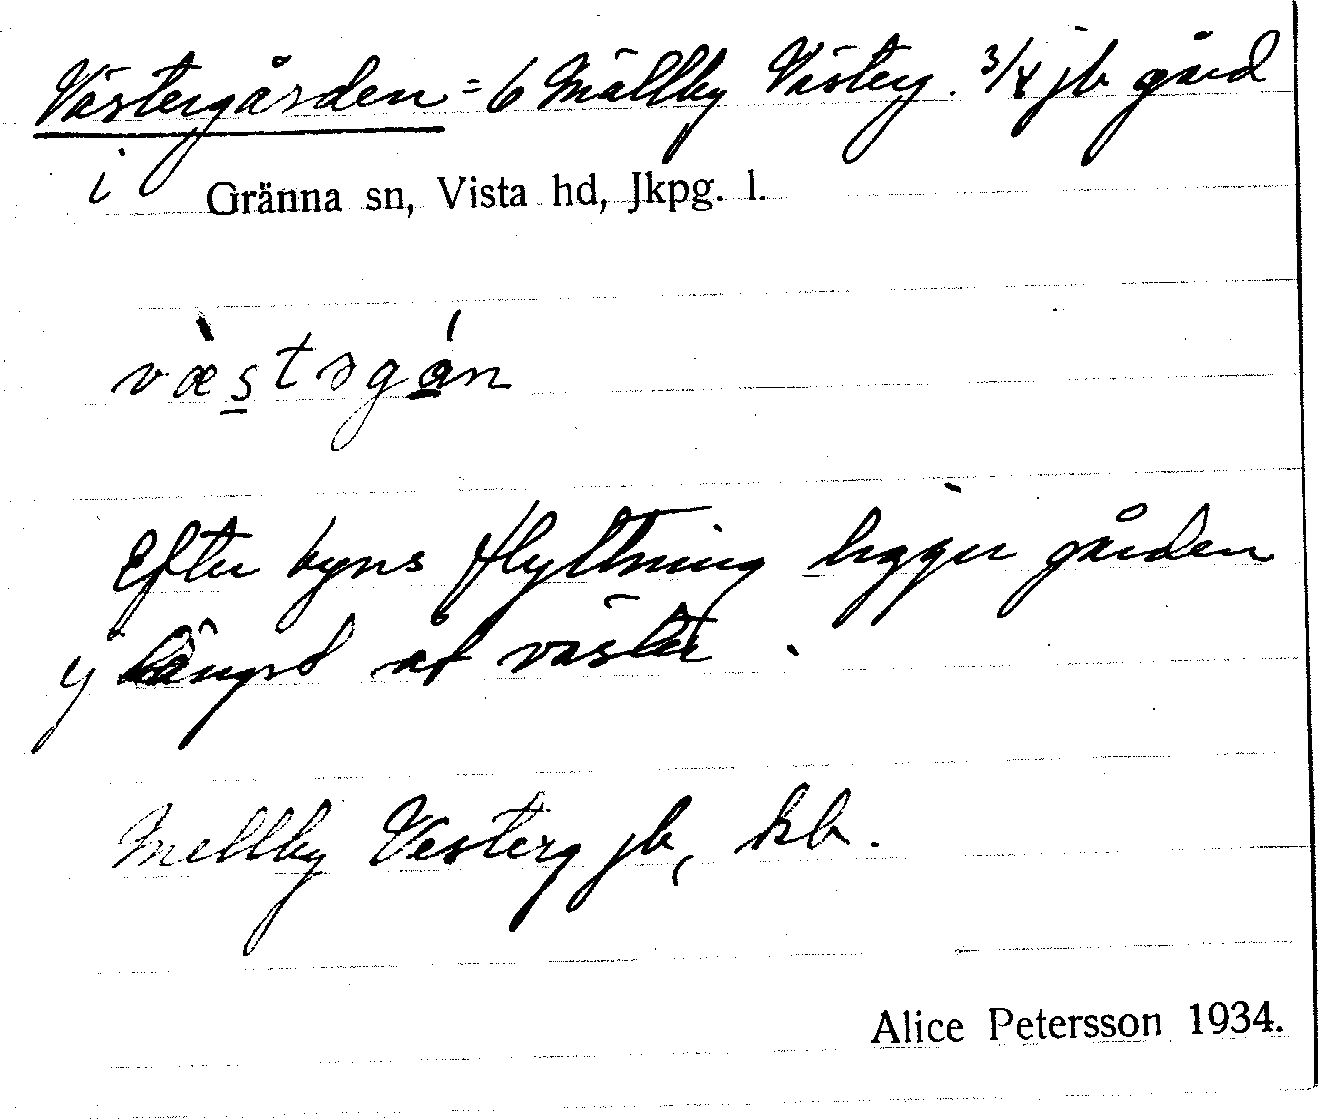 Västergården = 6 Mällby Västerg. 3/4 jb gård
i Gränna sn, Vista hd, Jkpg. l.
væ̀stəgán
Efter byns flyttning ligger gården
ej längst åt väster.
Mellby Vesterg jb, kb.
Alice Petersson 1934.